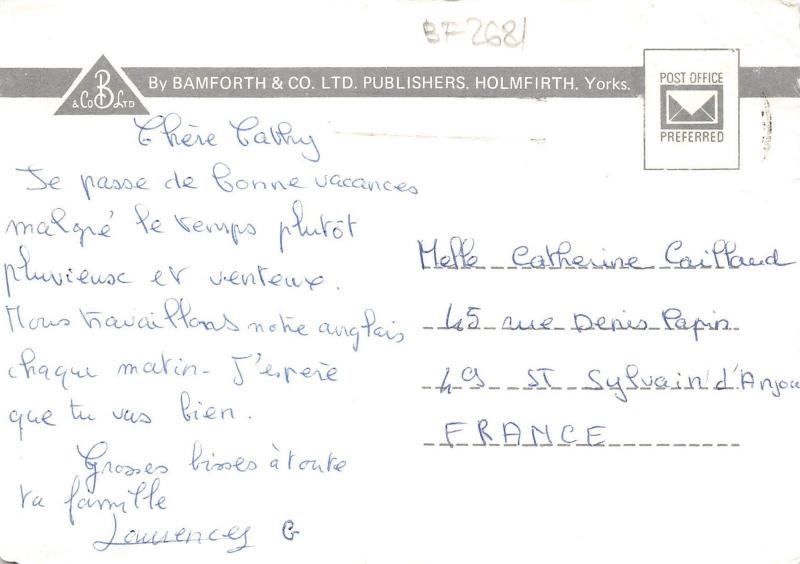 BF2681
B & Co LTD
By BAMFORTH & CO. LTD. PUBLISHERS. HOLMFIRTH. Yorks.
POST OFFICE
PREFERRED
Chère Cathy
Je passe de bonne vacances
malgré le temps plutôt
pluvieux et venteux.
Nous travaillons notre anglais
chaque matin - J'espère
que tu vas bien.
Grosses bisses à toute
ta famille
Laurence G
Melle Catherine Caillaud
45 rue Denis Papin
49 ST Sylvain d'Anjou
FRANCE